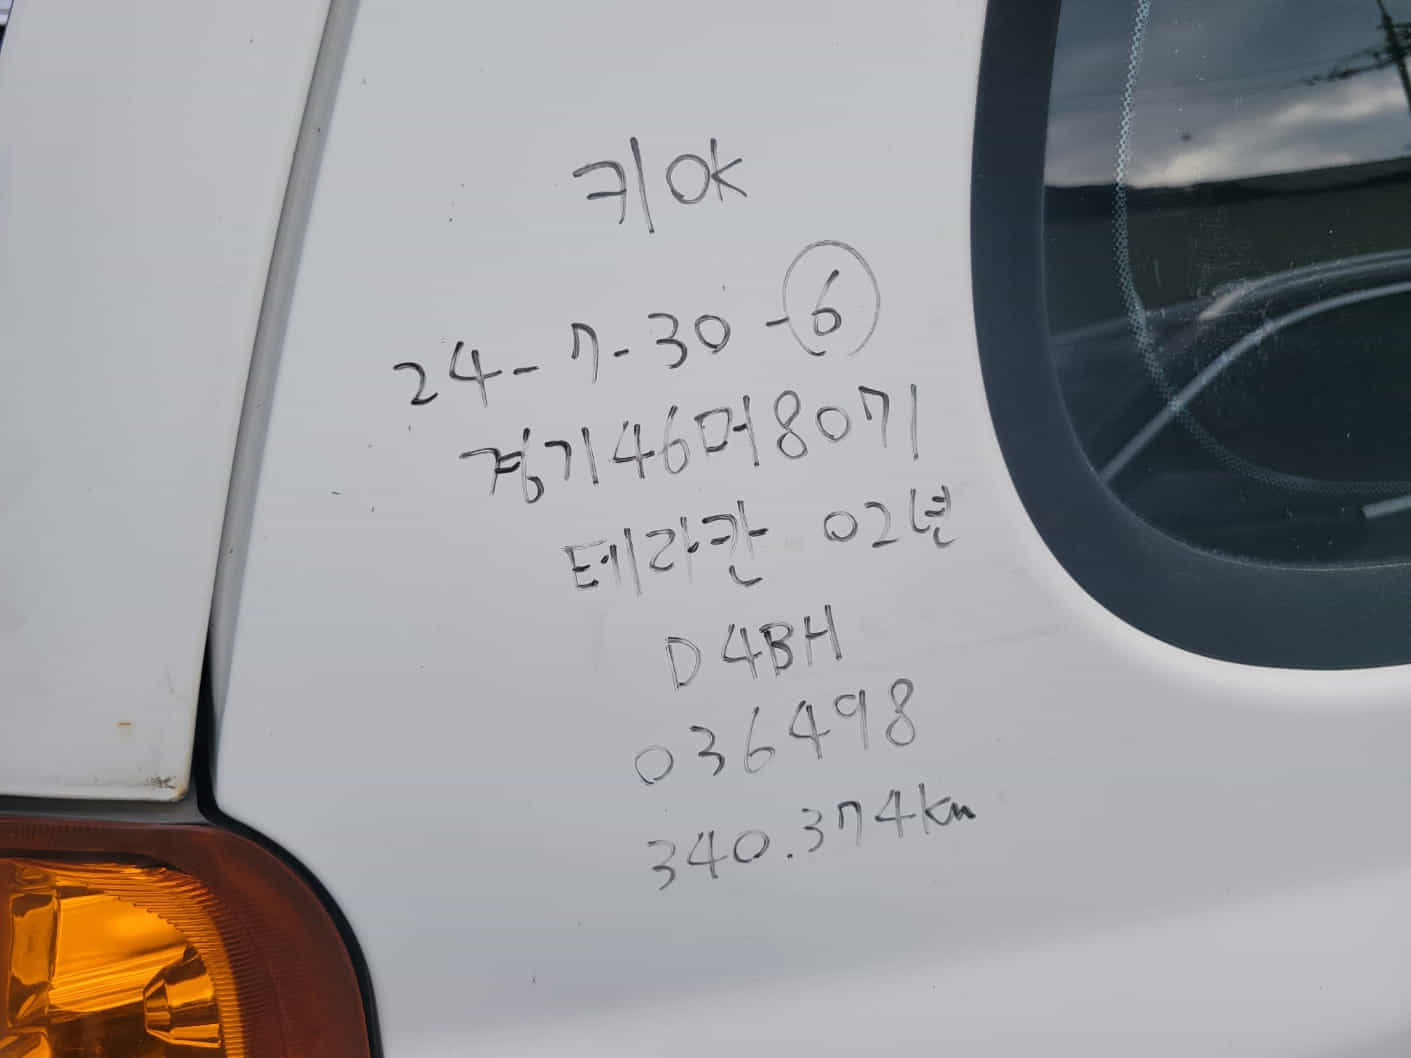 키 OK
24-7-30-⑥
경기46머8071
테라칸 02년
D4BH
036498
340.374km